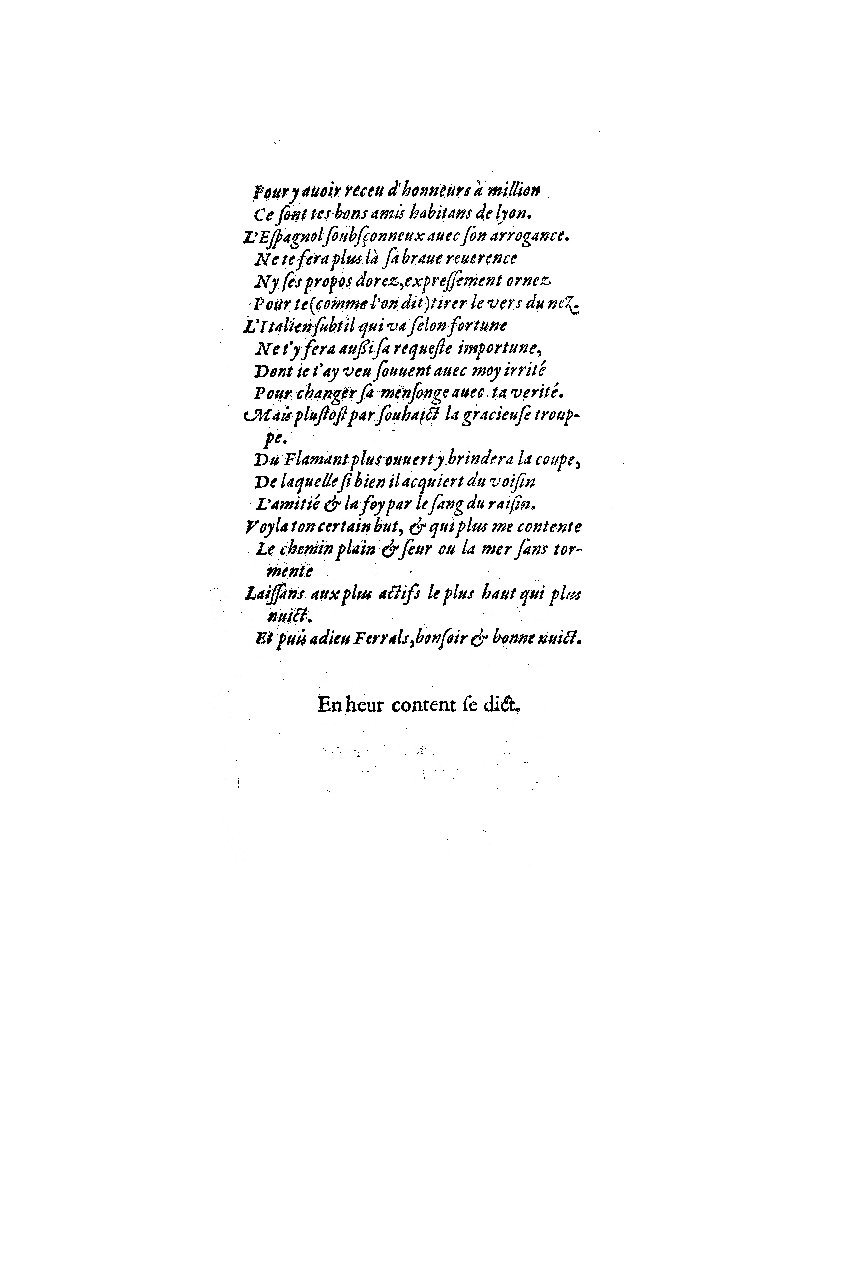 Pour y auoir receu d'honneurs à million
Ce ſont tes bons amis habitans de lyon.
L'Eſpagnol ſoubſçonneux auec ſon arrogance.
Ne te fera plus là ſa braue reuerence
Ny ſes propos dorez, expreſſement ornez
Pour te (comme l'on dit) tirer le vers du nez.
L'Italien ſubtil qui va ſelon fortune
Ne t'y fera auſsi ſa requeſte importune,
Dont ie t'ay veu ſouuent auec moy irrité
Pour changer ſa menſonge auec ta verité.
Mais pluſtoſt par ſouhaict la gracieuſe troup-
pe.
Du Flamant plus ouuert y brindera la coupe,
De laquelle ſi bien il acquiert du voiſin
L'amitié & la foy par le ſang du raiſin.
Voyla ton certain but, & qui plus me contente
Le chemin plain & ſeur ou la mer ſans tor-
mente
Laiſſans aux plus actifs le plus haut qui plus
nuict.
Et puis adieu Ferrals, bonſoir & bonne nuict.
En heur content ſe dict.